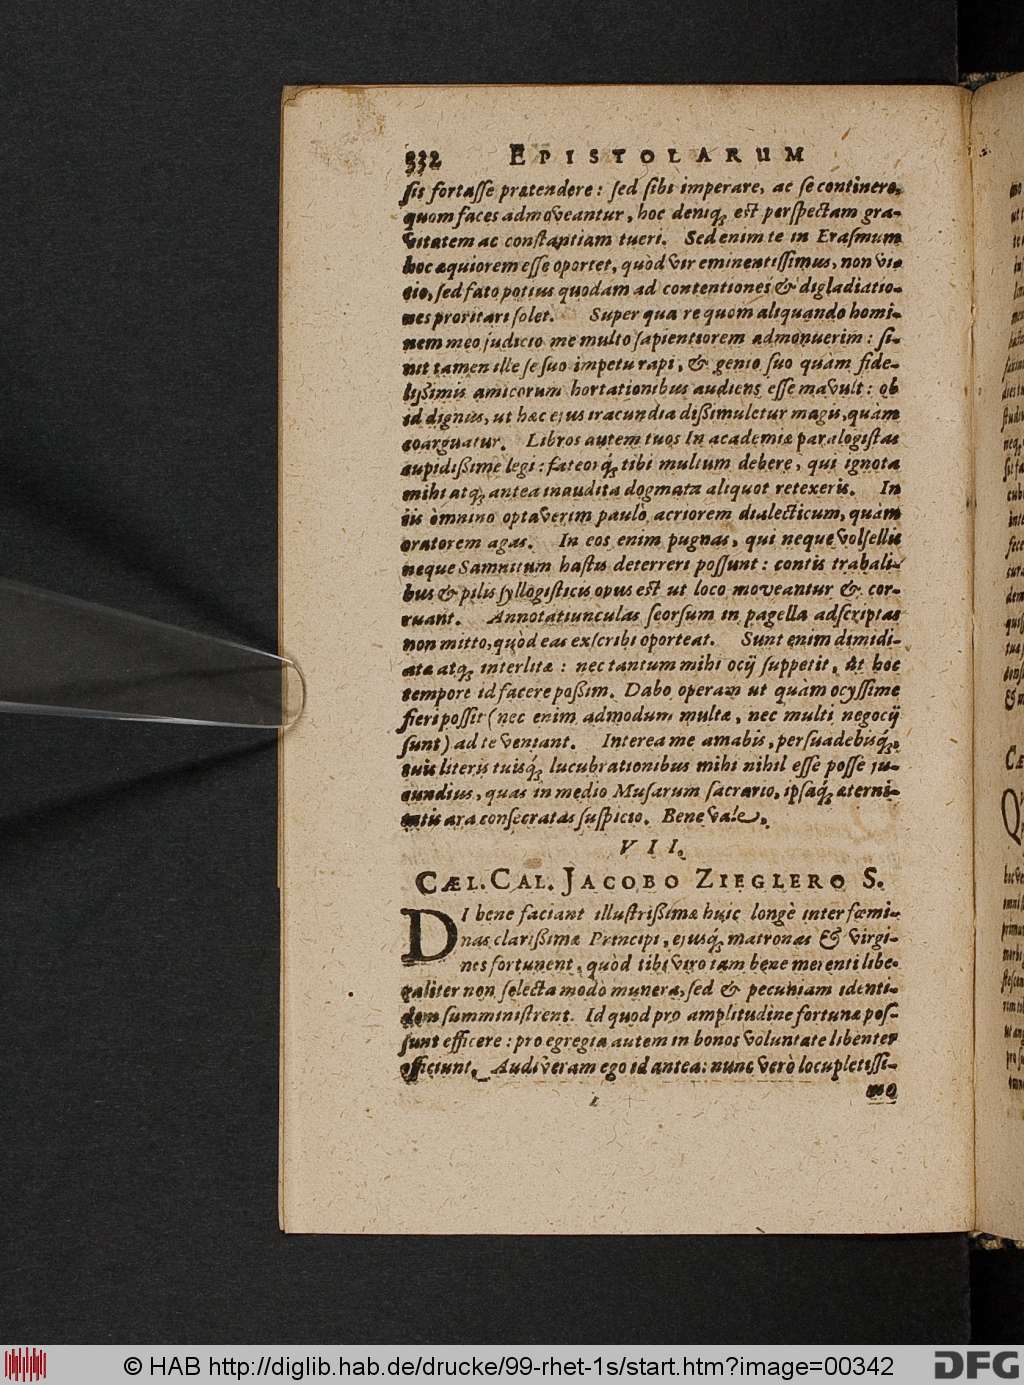 332 EPISTOLARUM
sis fortasse prætendere: sed sibi imperare, ac se continere,
quom faces admoveantur, hoc deniq; est perspectam gra-
vitatem ac constantiam tueri. Sed enim te in Erasmum
hoc æquiorem esse oportet, quòd vir eminentissimus, non vi-
tio, sed fato potius quodam ad contentiones & digladiatio-
nes proritari solet. Super qua re quom aliquando homi-
nem meo judicio me multo sapientiorem admonuerim: si-
nit tamen ille se suo impetu rapi, & genio suo quàm fide-
lißimis amicorum hortationibus audiens esse mavult: ob
id dignius, ut hæc ejus iracundia dißimuletur magis, quàm
coarguatur. Libros autem tuos In academiæ paralogistas
cupidißime legi: fateorq́; tibi multum debere, qui ignota
mihi atq; antea inaudita dogmata aliquot retexeris. In
iis omnino optaverim paulò acriorem dialecticum, quàm
oratorem agas. In eos enim pugnas, qui neque volsellis
neque Samnitum hastis deterreri possunt: contis trabali-
bus & pilis syllogisticis opus est ut loco moveantur & cor-
ruant. Annotatiunculas seorsum in pagella adscriptas
non mitto, quòd eas exscribi oporteat. Sunt enim dimidi-
atæ atq; interlitæ: nec tantum mihi ocij suppetit, ut hoc
tempore id facere poßim. Dabo operam ut quàm ocyssime
fieri possit (nec enim admodum multæ, nec multi negocij
sunt) ad te veniant. Interea me amabis, persuadebisq́;
tuis literis tuisq́; lucubrationibus mihi nihil esse posse ju-
cundius, quas in medio Musarum sacrario, ipsaq́; æterni-
tatis ara consecratas suspicio. Bene Vale.
VII.
CÆL. CAL. JACOBO ZIEGLERO S.
DI bene faciant illustrißimæ huic longè inter fœmi-
nas clarißimæ Principi, ejusq́; matronas & virgi-
nes fortunent, quòd tibi viro tam bene merenti libe-
raliter non selecta modò munera, sed & pecuniam identi-
dem sumministrent. Id quod pro amplitudine fortunæ pos-
sunt efficere: pro egregia autem in bonos voluntate libenter
officiunt. Audiveram ego id antea: nunc verò locupletissi-
mo
© HAB http://diglib.hab.de/drucke/99-rhet-1s/start.htm?image=00342
DFG